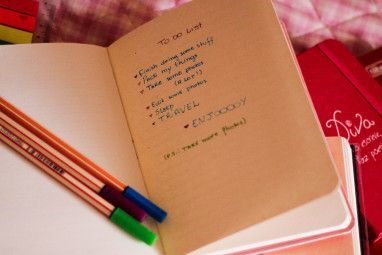 To do List
Finish doing some stuff
Pack my things
Take some photos
(A lot!)
Edit some photos
Sleep
TRAVEL
ENJOOOOY
(P.S.: TAKE MORE PHOTOS)
Diva